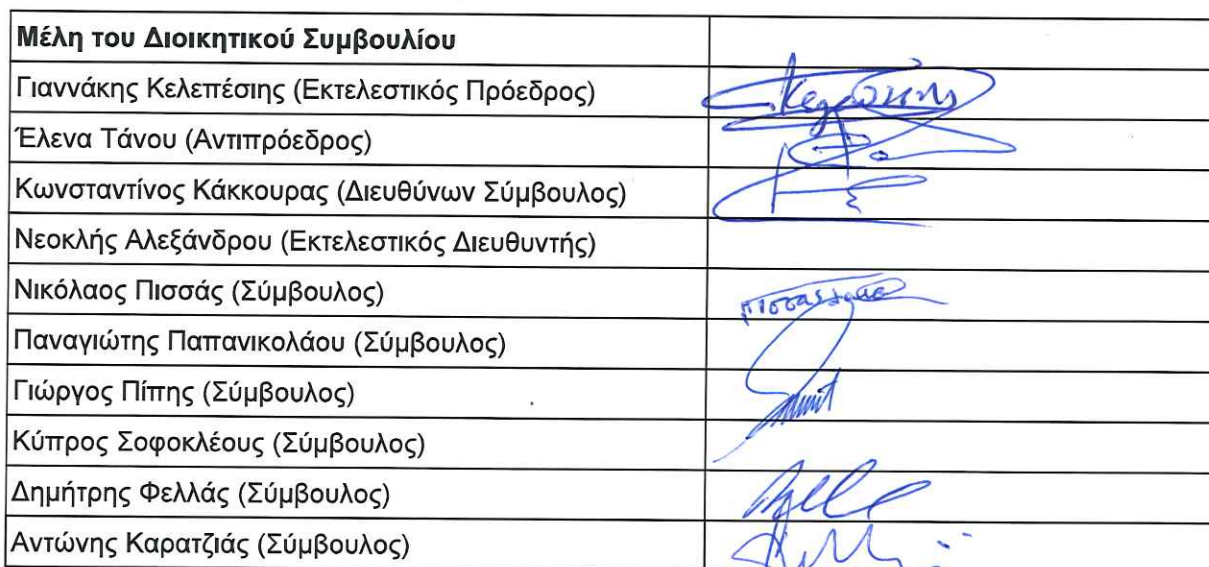 Μέλη του Διοικητικού Συμβουλίου
Γιαννάκης Κελεπέσιης (Εκτελεστικός Πρόεδρος)
Έλενα Τάνου (Αντιπρόεδρος)
Κωνσταντίνος Κάκκουρας (Διευθύνων Σύμβουλος)
Νεοκλής Αλεξάνδρου (Εκτελεστικός Διευθυντής)
Νικόλαος Πισσάς (Σύμβουλος)
Παναγιώτης Παπανικολάου (Σύμβουλος)
Γιώργος Πίπης (Σύμβουλος)
Κύπρος Σοφοκλέους (Σύμβουλος)
Δημήτρης Φελλάς (Σύμβουλος)
Αντώνης Καρατζιάς (Σύμβουλος)